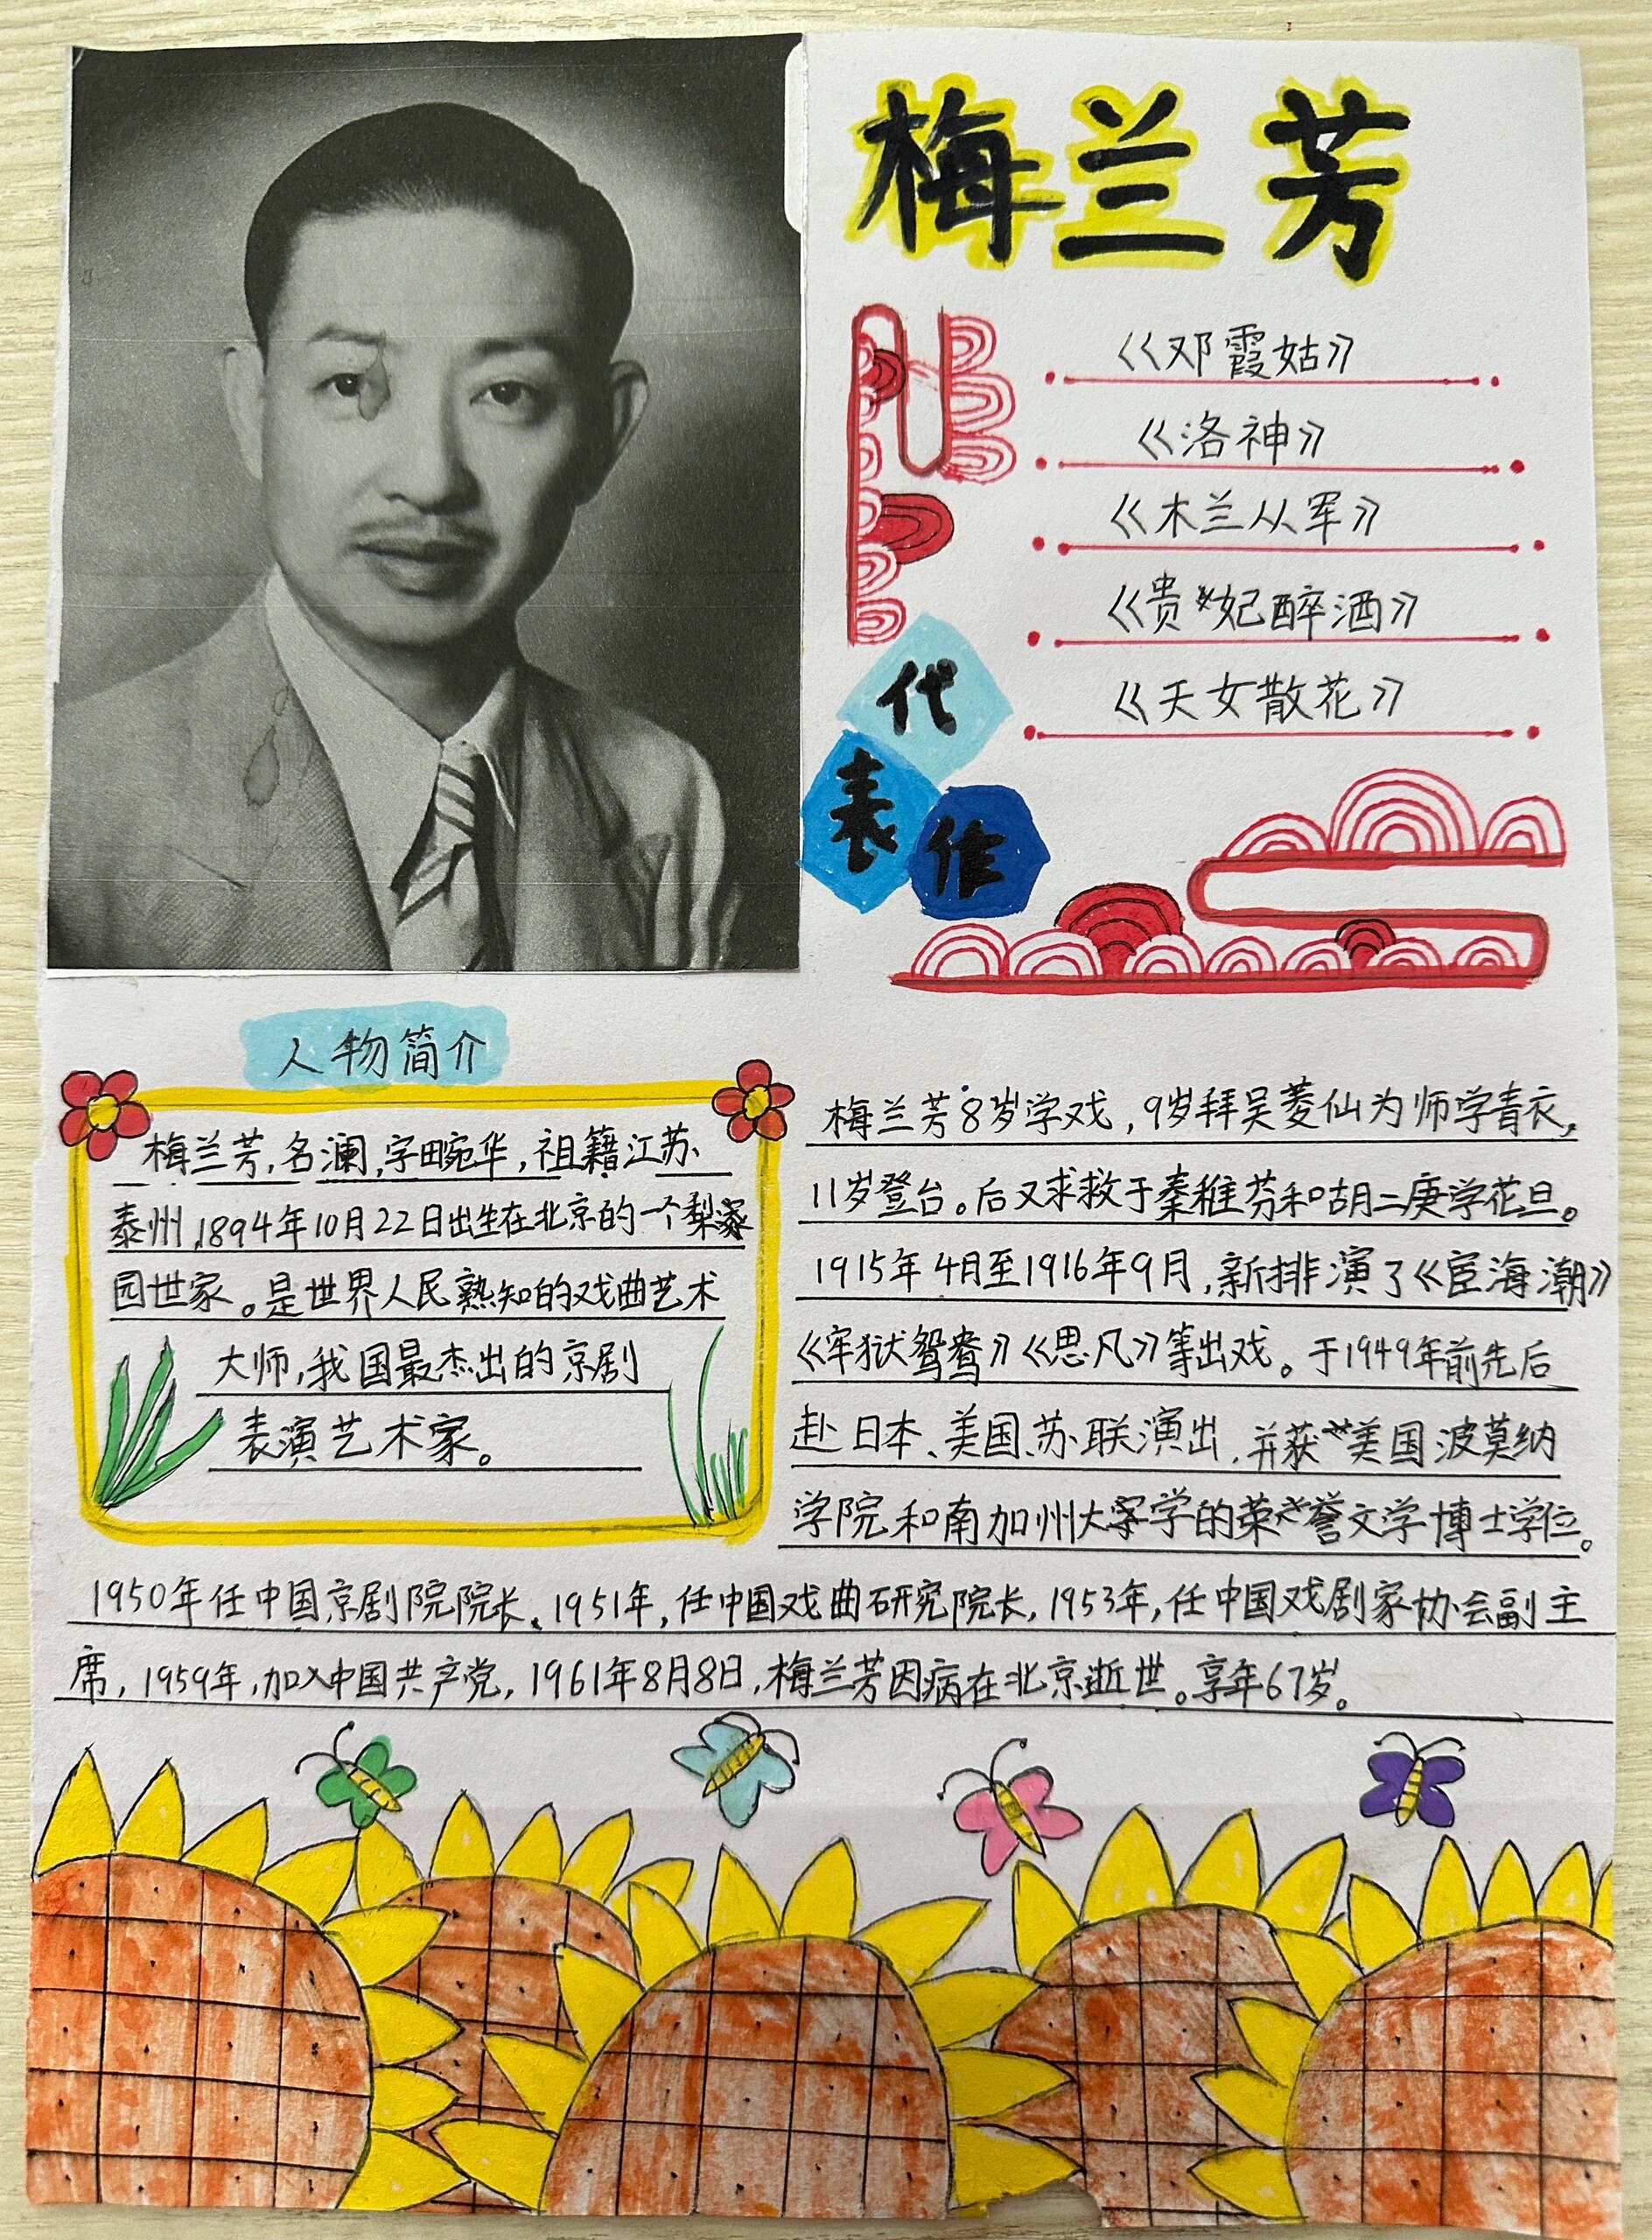 梅兰芳
《邓霞姑》
《洛神》
《木兰从军》
《贵妃醉酒》
《天女散花》
代
表
作
人物简介
梅兰芳,名澜,字畹华,祖籍江苏
泰州,1894年10月22日出生在北京的一个梨
园世家。是世界人民熟知的戏曲艺术
大师,我国最杰出的京剧
表演艺术家。
梅兰芳8岁学戏,9岁拜吴菱仙为师学青衣,
11岁登台。后又求救于秦稚芬和胡二庚学花旦。
1915年4月至1916年9月,新排演了《宦海潮》
《牢狱鸳鸯》《思凡》等出戏。于1949年前先后
赴日本、美国、苏联演出,并获美国波莫纳
学院和南加州大学的荣誉文学博士学位。
1950年任中国京剧院院长、1951年,任中国戏曲研究院院长,1953年,任中国戏剧家协会副主
席,1959年,加入中国共产党,1961年8月8日,梅兰芳因病在北京逝世。享年67岁。